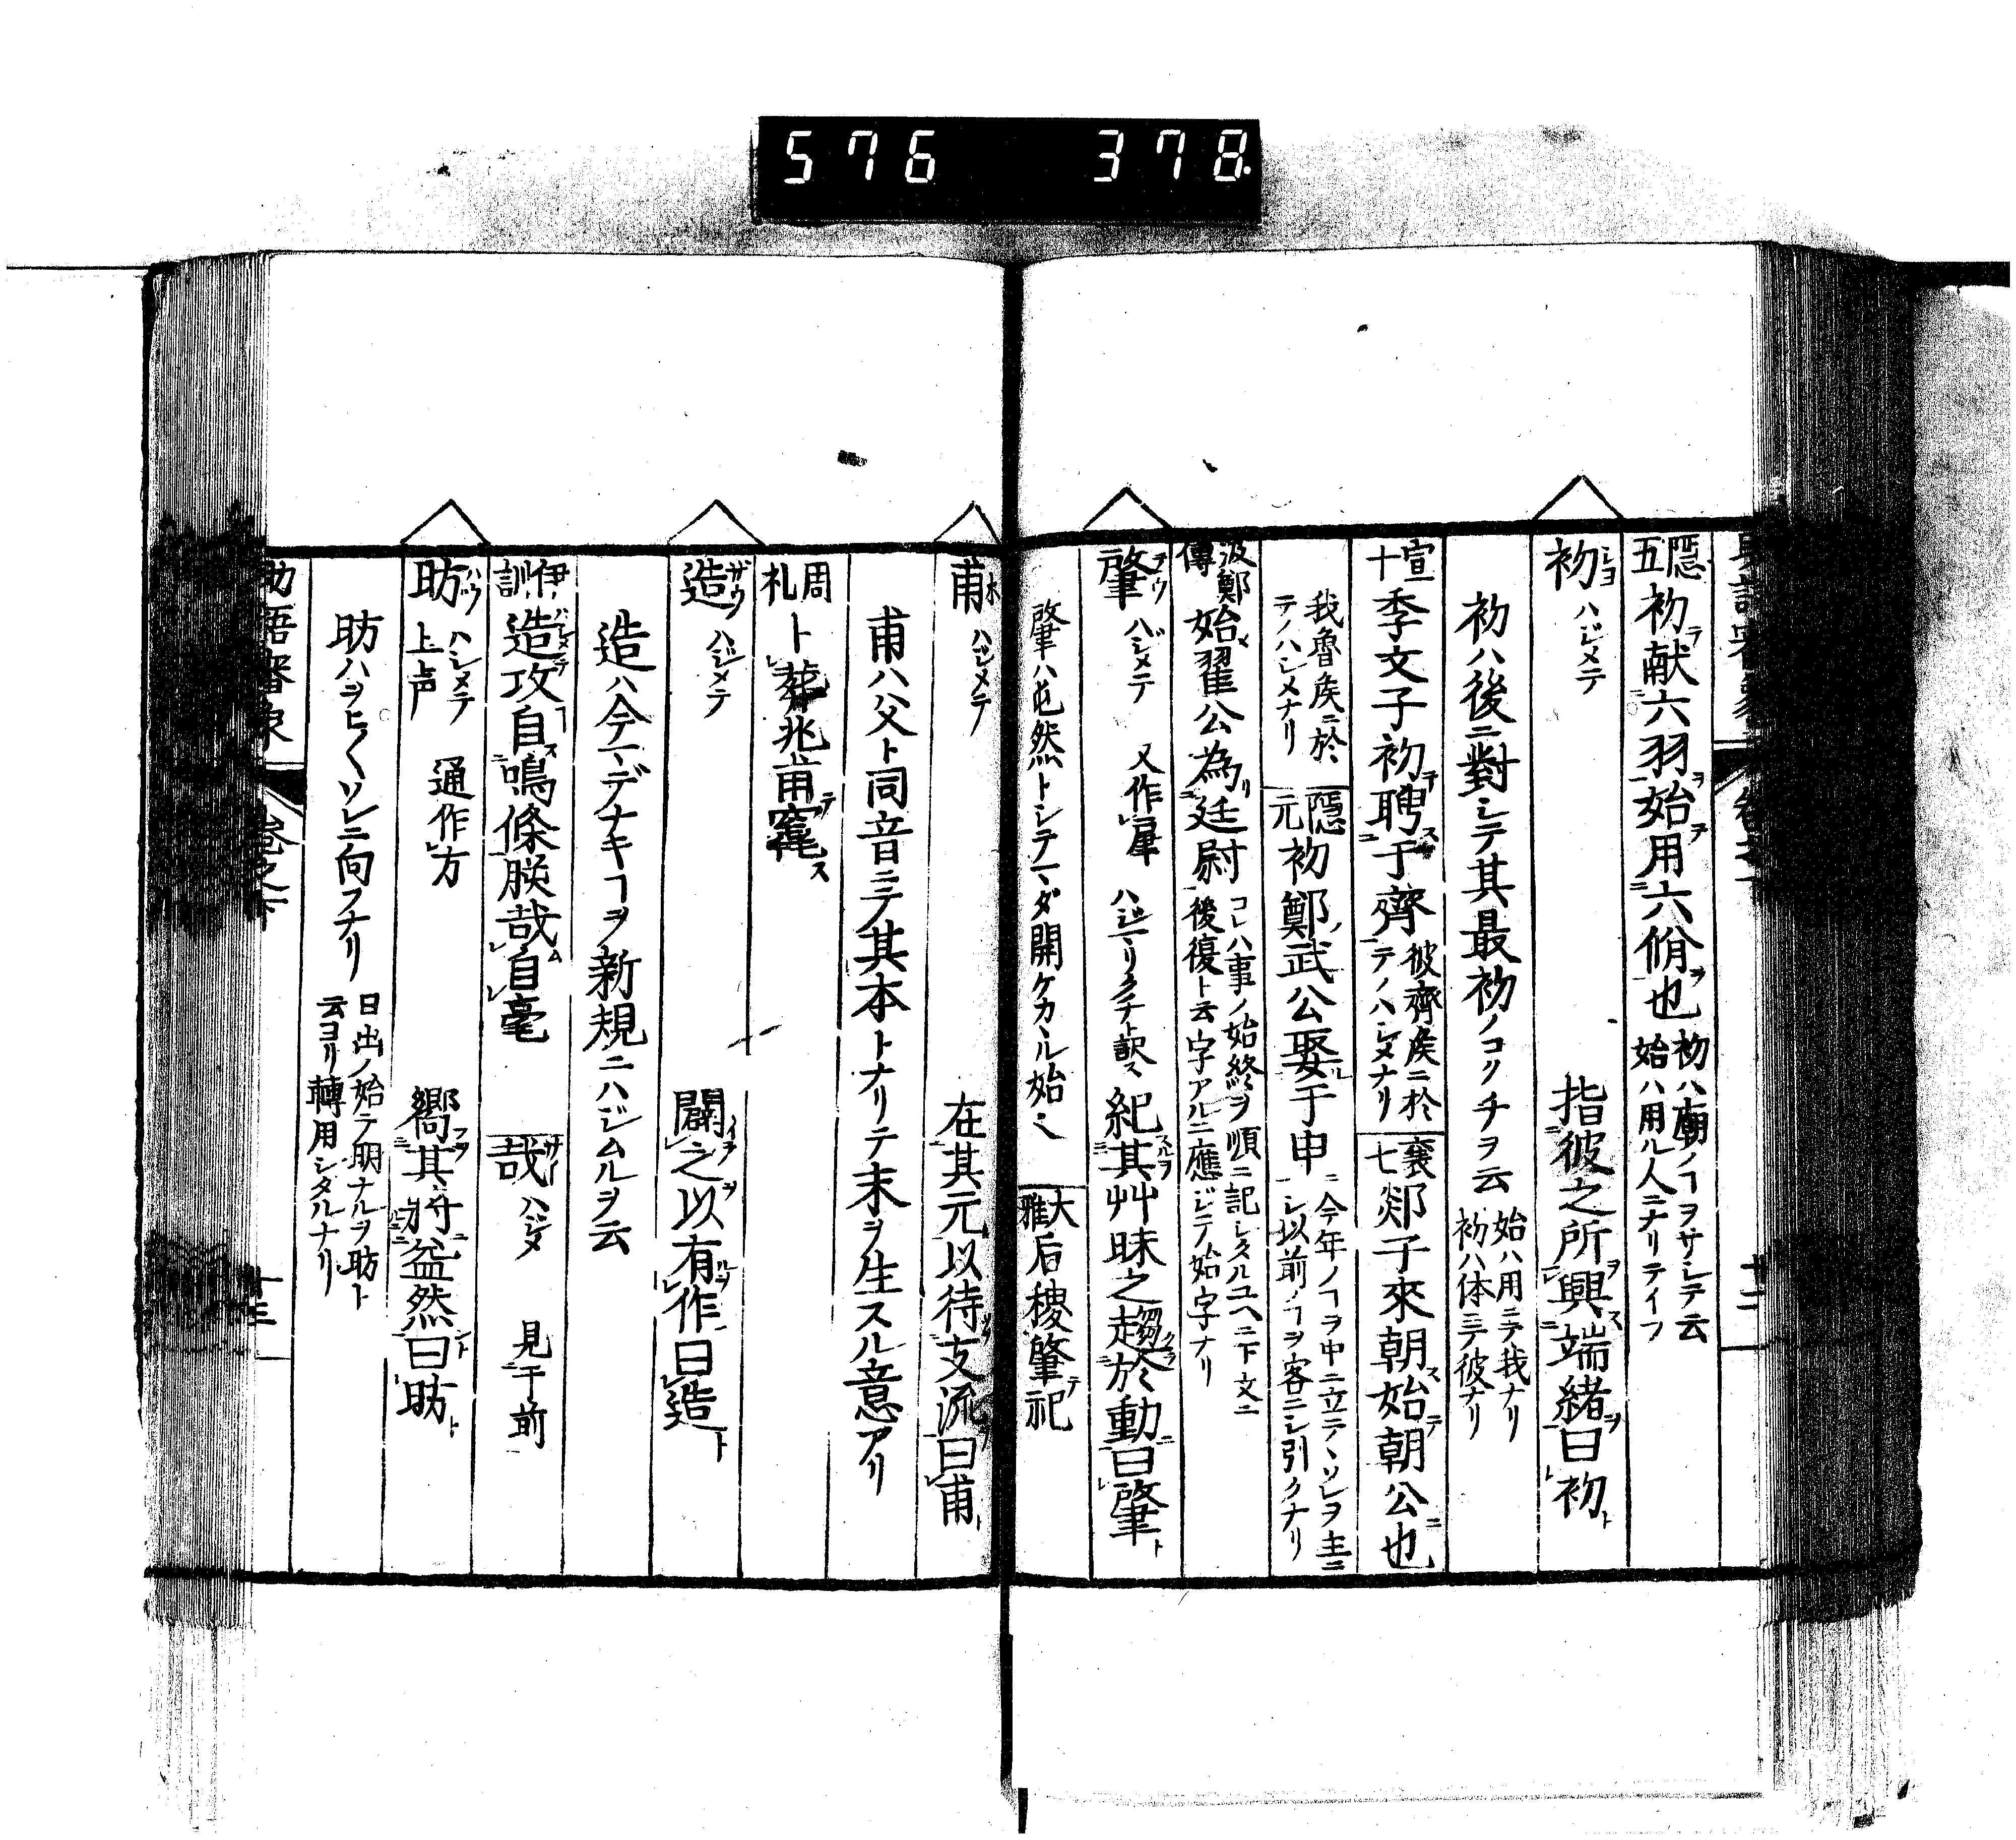 576 378
隠五初テ献六羽ヲ始テ用六佾ヲ也 初ハ廟ノヿヲサシテ云 始ハ用ル人ニナリテイフ
初 シヨ ハジメテ 指彼之所興端緒ヲ曰初ト
初ハ後ニ對シテ其最初ノコノチヲ云 始ハ用ニテ我ナリ 初ハ体ニテ彼ナリ
宣十季文子初テ聘ス于齊 彼齊矦ニ於テノハシメナリ 襄七郯子來朝ス始テ朝公ニ也
我魯矦ニ於テノハシメナリ 隠元初鄭武公娶于申 今年ノヿヲ中ニ立テヽソレヲ主ニシ以前ノヿヲ客ニシ引クナリ
汲鄭傳始翟公為廷尉 コレハ事ノ始終ヲ順ニ記シタルユヘニ下文ニ後復ト云字アルニ應ジテ始字ナリ
肇 テウ ハジメテ 又作肈 ハジマリクチト訳ス 紀其艸昧之趨於動曰肇ト
肇ハ芚然トシテマダ開ケカヽル始ニ 大雅后稷肇テ祀
甫 ホ ハジメテ 在其元以待支流曰甫ト
甫ハ父ト同音ニテ其本トナリテ末ヲ生スル意アリ
周礼卜葬兆甫テ竁ス
造 ザウ ハジメテ 闢之以有作曰造ト
造ハ今マデナキヿヲ新規ニハジムルヲ云
伊訓造攻自鳴條朕哉自亳 哉 サイ ハジメ 見于前
昉 ハウ ハシメテ 上声 通作方 嚮其將盆然曰昉ト
昉ハヲヒ〱ソレニ向フナリ 日出ノ始テ明ナルヲ昉ト云ヨリ轉用シタルナリ
助語審象 卷之下 十三